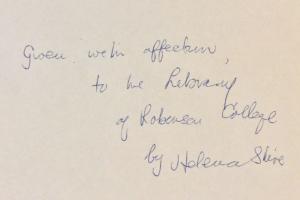 Given with affection,
to the Library
of Robinson College
by Helena Shire